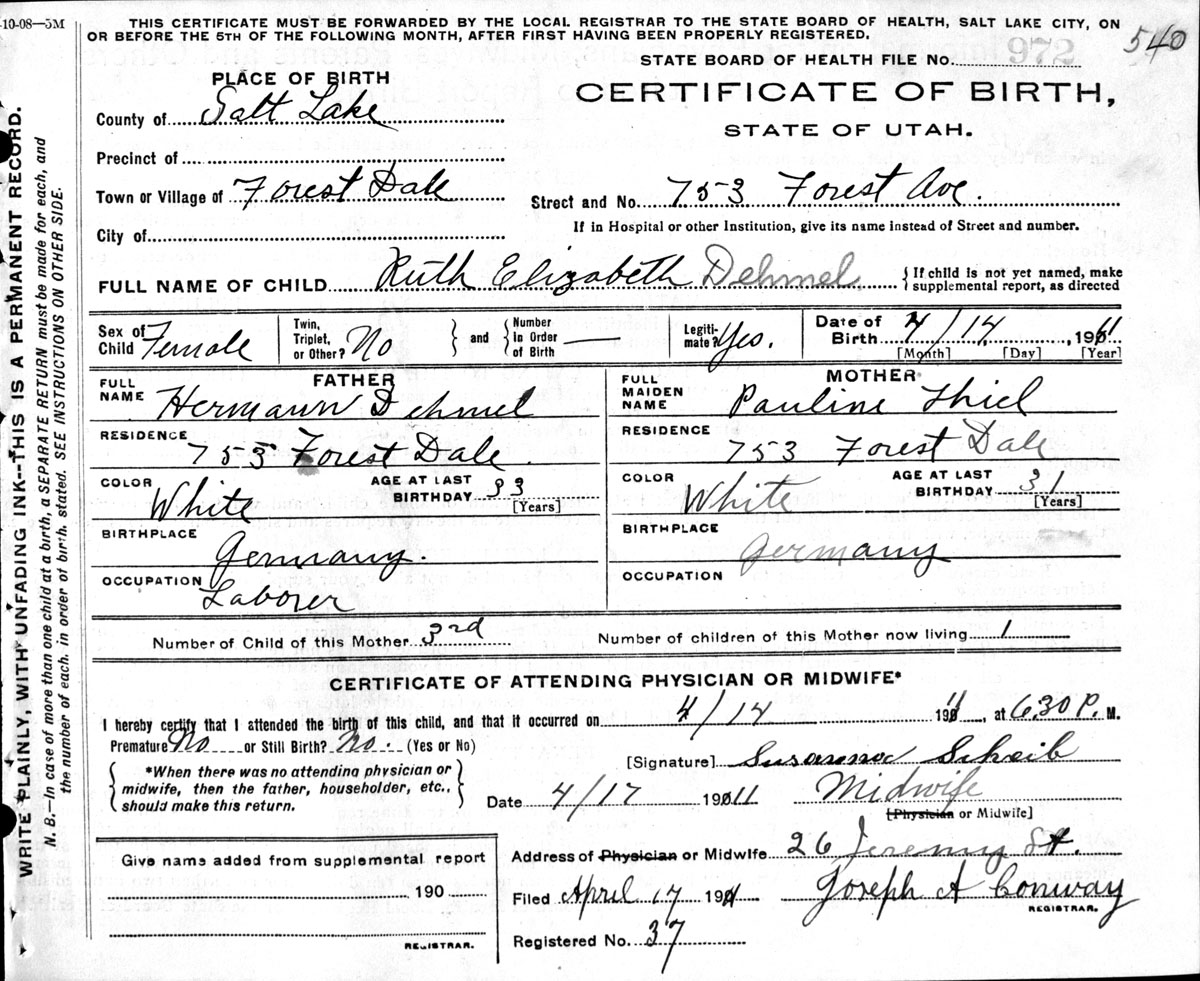 10-08—5M
THIS CERTIFICATE MUST BE FORWARDED BY THE LOCAL REGISTRAR TO THE STATE BOARD OF HEALTH, SALT LAKE CITY, ON
OR BEFORE THE 5TH OF THE FOLLOWING MONTH, AFTER FIRST HAVING BEEN PROPERLY REGISTERED.
540
STATE BOARD OF HEALTH FILE No. 972
PLACE OF BIRTH
CERTIFICATE OF BIRTH,
STATE OF UTAH.
County of Salt Lake
Precinct of
Town or Village of Forest Dale
Street and No. 753 Forest Ave.
City of
If in Hospital or other Institution, give its name instead of Street and number.
FULL NAME OF CHILD Ruth Elizabeth Dehmel
{ If child is not yet named, make
supplemental report, as directed
Sex of Child Female
Twin, Triplet, or Other? No
} and { Number in Order of Birth —
Legitimate? Yes.
Date of Birth 4/14, 1911
[Month] [Day] [Year]
FATHER
FULL NAME Hermann Dehmel
RESIDENCE 753 Forest Dale.
COLOR White
AGE AT LAST BIRTHDAY 33
[Years]
BIRTHPLACE Germany.
OCCUPATION Laborer
MOTHER
FULL MAIDEN NAME Pauline Thiel
RESIDENCE 753 Forest Dale
COLOR White
AGE AT LAST BIRTHDAY 31
[Years]
BIRTHPLACE Germany
OCCUPATION
Number of Child of this Mother 3rd
Number of children of this Mother now living 1
CERTIFICATE OF ATTENDING PHYSICIAN OR MIDWIFE*
I hereby certify that I attended the birth of this child, and that it occurred on 4/14 1911, at 6.30 P. M.
Premature No or Still Birth? No. (Yes or No)
{ *When there was no attending physician or
midwife, then the father, householder, etc.,
should make this return. }
[Signature] Susanna Scheib
Date 4/17 1911
Midwife
[Physician or Midwife]
Address of Physician or Midwife 26 Jeremy St.
Filed April 17 1911
Joseph A Conway
REGISTRAR.
Registered No. 37
Give name added from supplemental report
190
REGISTRAR.
WRITE PLAINLY, WITH UNFADING INK--THIS IS A PERMANENT RECORD.
N. B.—In case of more than one child at a birth, a SEPARATE RETURN must be made for each, and
the number of each, in order of birth, stated. SEE INSTRUCTIONS ON OTHER SIDE.